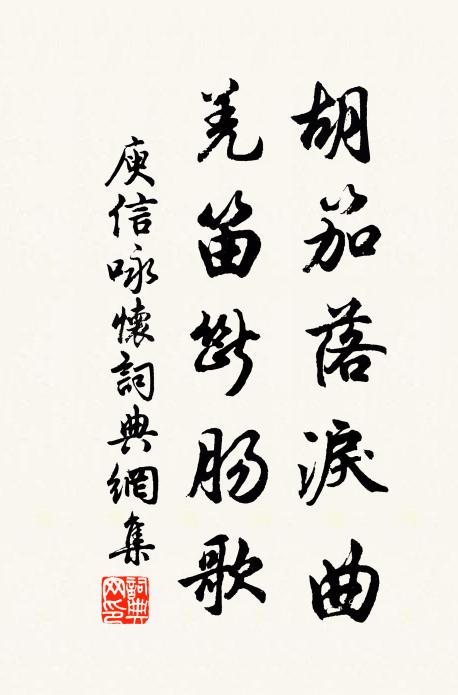 胡笳落淚曲
羌笛斷腸歌
庾信咏懷詞典網集
詞典網印